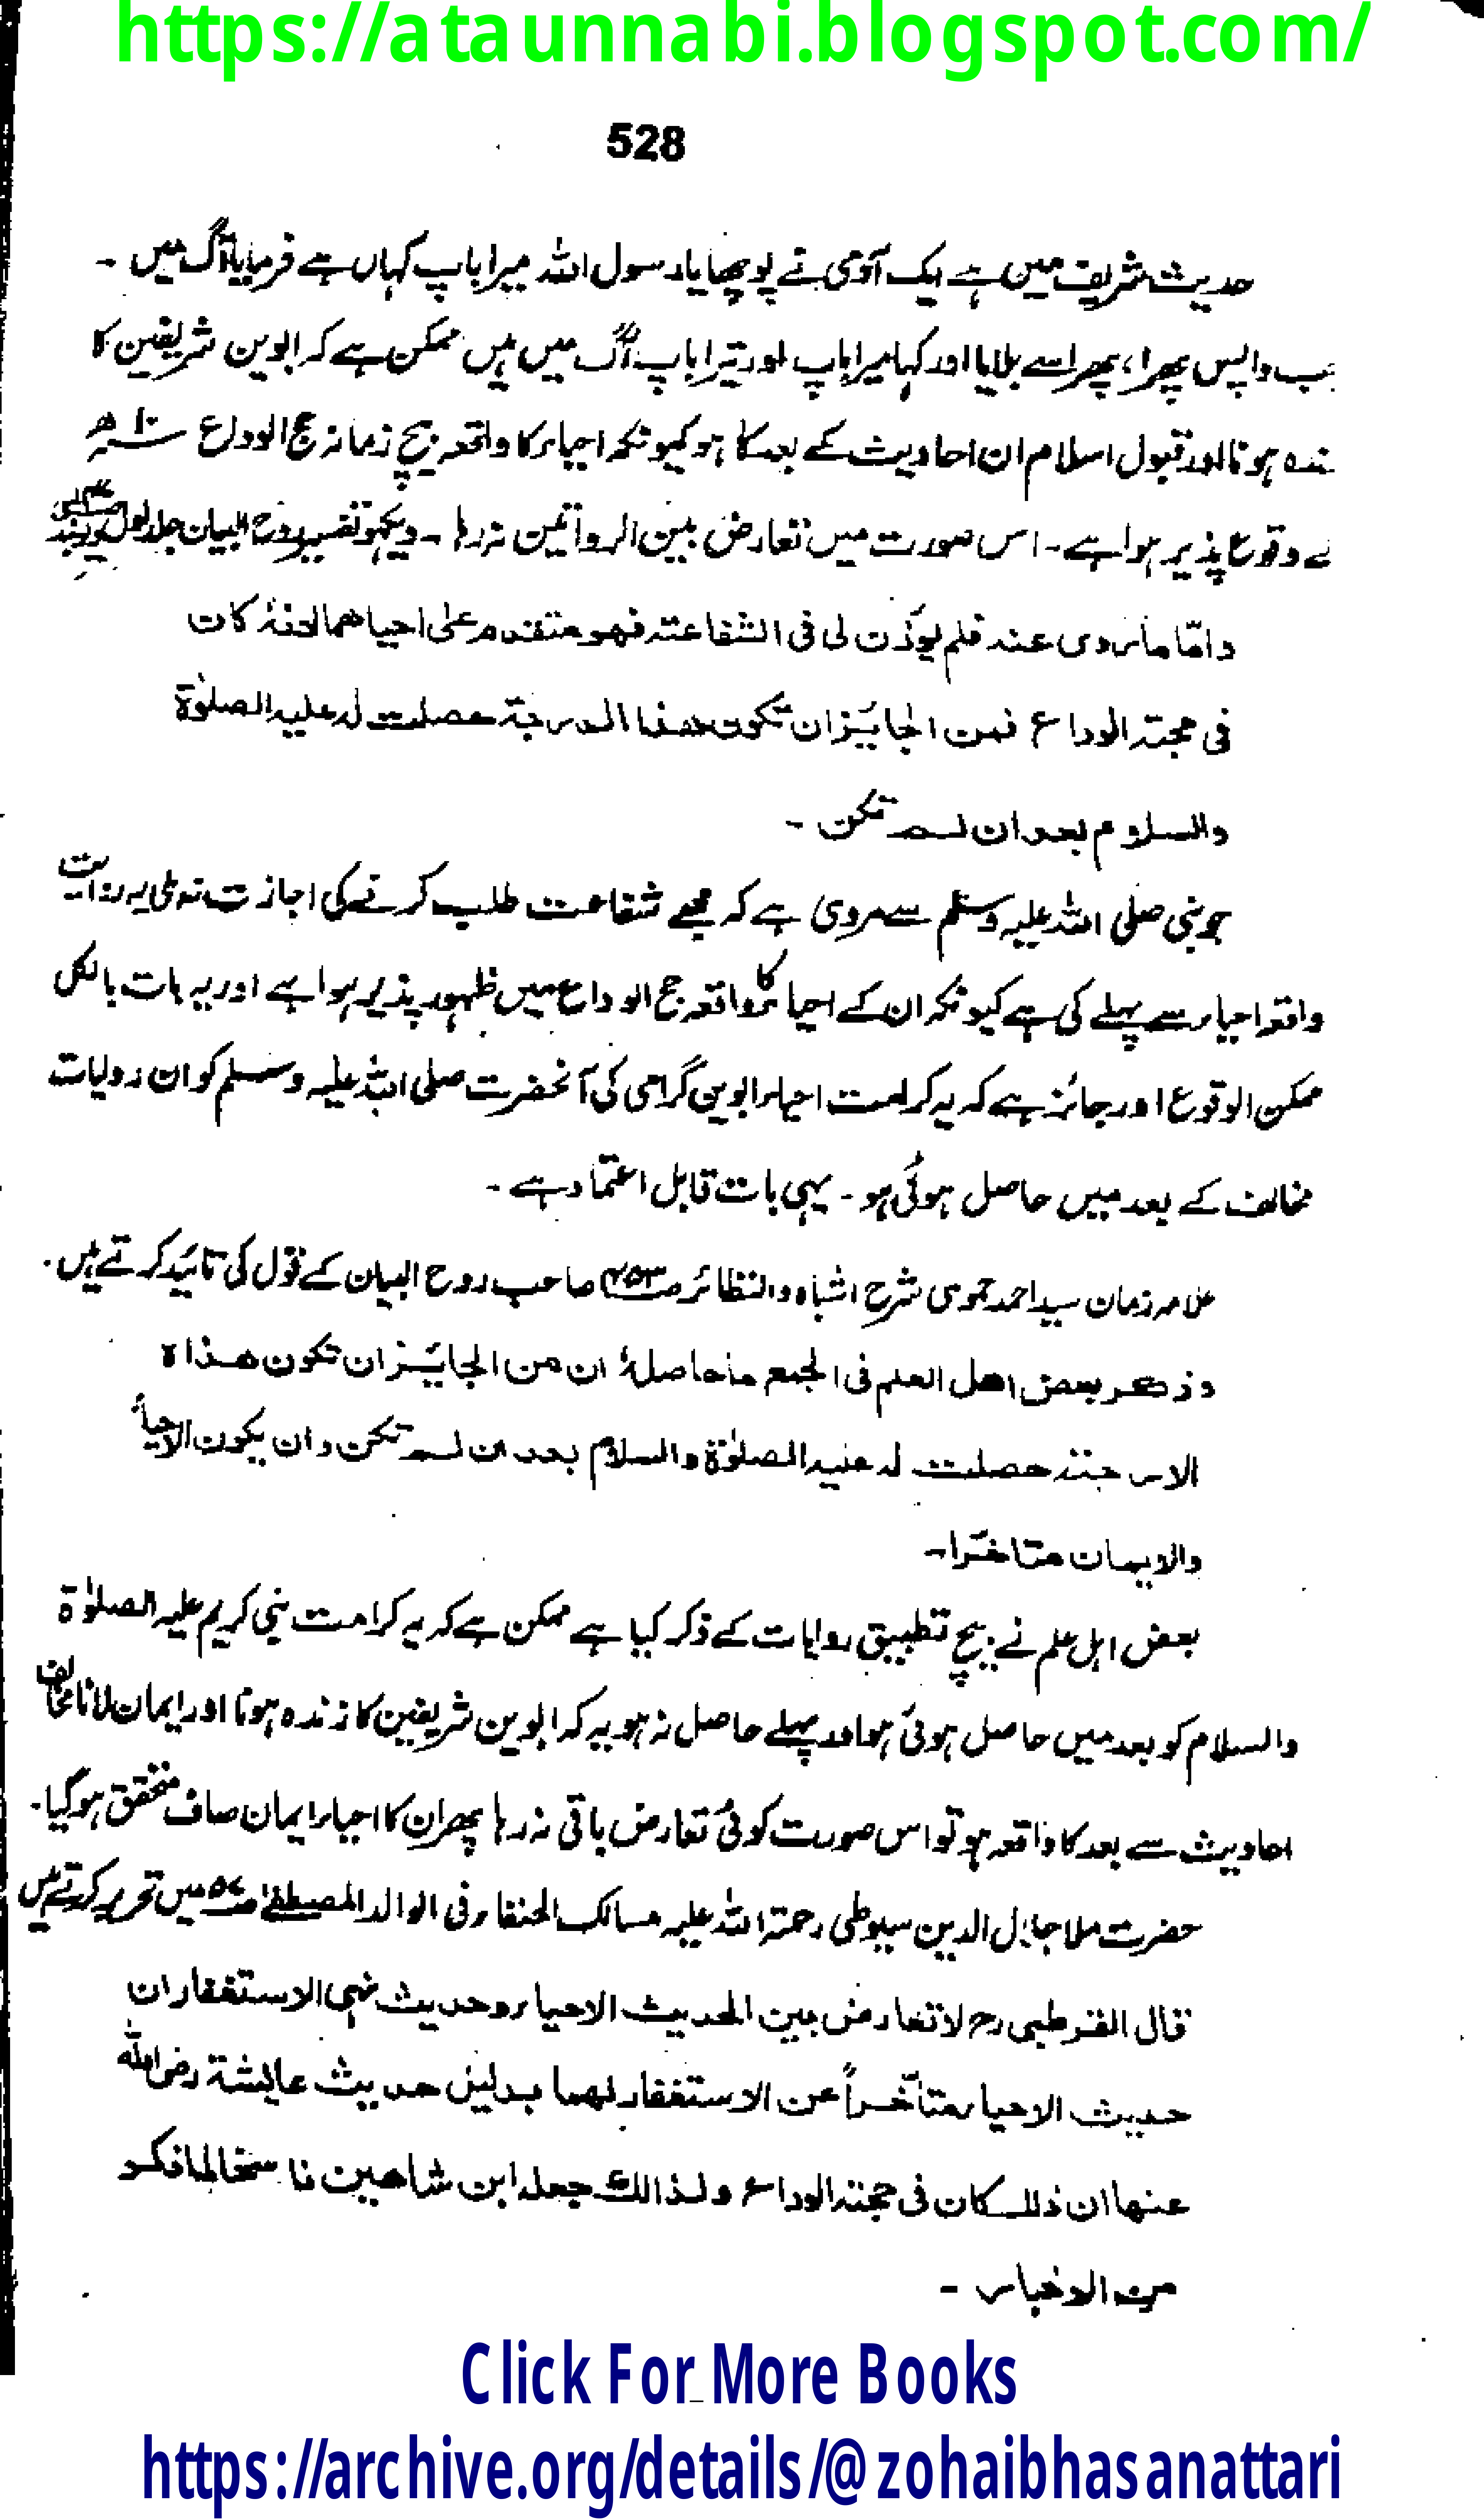 https://ataunnabi.blogspot.com/
528
حدیث شریف میں ہے ایک آدمی نے پوچھا یا رسول اللہ میرا باپ کہاں ہے فرمایا آگ میں ۔
جب واپس پھرا، پھر اسے بلایا اور کہا میرا باپ اور تیرا باپ آگ میں ہیں ممکن ہے کہ ابوین شریفین کا
زندہ ہونا اور قبول اسلام ان احادیث کے بعد کا ہو کیونکہ احیاء کا واقعہ بیچ زمانہ حج الوداع ۱۰ھ
کے وقوع پذیر ہوا ہے ۔ اس صورت میں تعارض بین الروائتین نہ رہا ۔ دیکھو تفسیر روح البیان جلد اول
واما ماروی عنہ فلم یوذن لی فی الشفاعتہ فھو متقدم علی احیاھما لانہٗ کان
فی حجتہ الوداع فمن الجائیز ان تکون ھذا الدرجۃ حصلت لہ علیہ الصلوٰۃ
والسلام بعد ان لم تکن ۔
جو نبی صلی اللہ علیہ وسلم سے مروی ہے کہ مجھے شفاعت طلب کرنے کی اجازت نہ ملی یہ روایت
واقعہ احیاء سے پہلے کی ہے کیونکہ ان کے احیاء کا واقعہ حج الوداع میں ظہور پذیر ہوا ہے اور یہ بات بالکل
ممکن الوقوع اور جائز ہے کہ یہ کرامت احیاء ابوین گرامی کی آنحضرت صلی اللہ علیہ وسلم کو ان روایات
مخالف کے بعد میں حاصل ہوئی ہو ۔ یہی بات قابل اعتماد ہے ۔
علامہ زمان سید احمد حموی شرح اشباہ والنظائر صـ۴۵۳ صاحب روح البیان کے قول کی تائید کرتے ہیں ۔
وذکر بعض اھل العلم فی الجمع ما حاصلہٗ ان من الجائیز ان تکون ھذا ہ
الدرجتہ حصلت لہ علیہ الصلوٰۃ والسلام بعد ان لم تکن وان یکون الاحیاءُ
والایمان متاخرا ۔
بعض اہل علم نے بیچ تطبیق روایات کے ذکر کیا ہے ممکن ہے کہ یہ کرامت نبی کریم علیہ الصلوٰۃ
والسلام کو بعد میں حاصل ہوئی ہو اور پہلے حاصل نہ ہو یہ کہ ابوین شریفین کا زندہ ہونا اور ایمان لانا مخالف
احادیث سے بعد کا واقعہ ہو تو اس صورت کوئی تعارض باقی نہ رہا پھر ان کا احیاء ایمان صاف متحقق ہو گیا ۔
حضرت ملا جلال الدین سیوطی رحمۃ اللہ علیہ مسالک الحنفاء فی الوالد المصطفیٰ میں تحریر کرتے ہیں
قال القرطبی رح لا تعارض بین الحدیث الاحیاء وحدیث نہی الاستغفار ان
حدیث الاحیاء متآخراً عن الاستغفار لھما بدلیل حدیث عائیشۃ رضی اللہ
عنھا ان ذلک کان فی حجتہ الوداع ولذالک جعلہ ابن شاھین ناسخا لما ذکر
من الاخبار ۔
Click For More Books
https://archive.org/details/@zohaibhasanattari